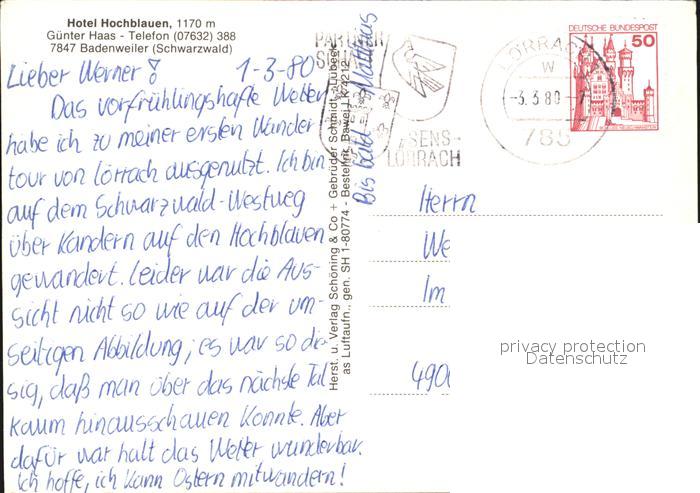 Hotel Hochblauen, 1170 m
Günter Haas - Telefon (07632) 388
7847 Badenweiler (Schwarzwald)
Lieber Werner! 1-3-80
Das vorfrühlingshafte Wetter
habe ich zu meiner ersten Wander
tour von Lörrach ausgenutzt. Ich bin
auf dem Schwarzwald-Westweg
über Kandern auf den Hochblauen
gewandert. Leider war die Aus-
sicht nicht so wie auf der um-
seitigen Abbildung; es war so die-
sig, daß man über das nächste Tal
kaum hinausschauen konnte. Aber
dafür war halt das Wetter wunderbar.
Ich hoffe, ich kann Ostern mitwandern!
Bis bald Matthäus
Herst. u. Verlag Schöning & Co + Gebrüder Schmidt, Lübeck
as Luftaufn., gen. SH 1-80774 - Bestellnr. Bawei L K 4212
LÖRRACH
-3.3.80
785
LÖRRACH
DEUTSCHE BUNDESPOST
50
Herrn
We
Im
490
privacy protection
Datenschutz